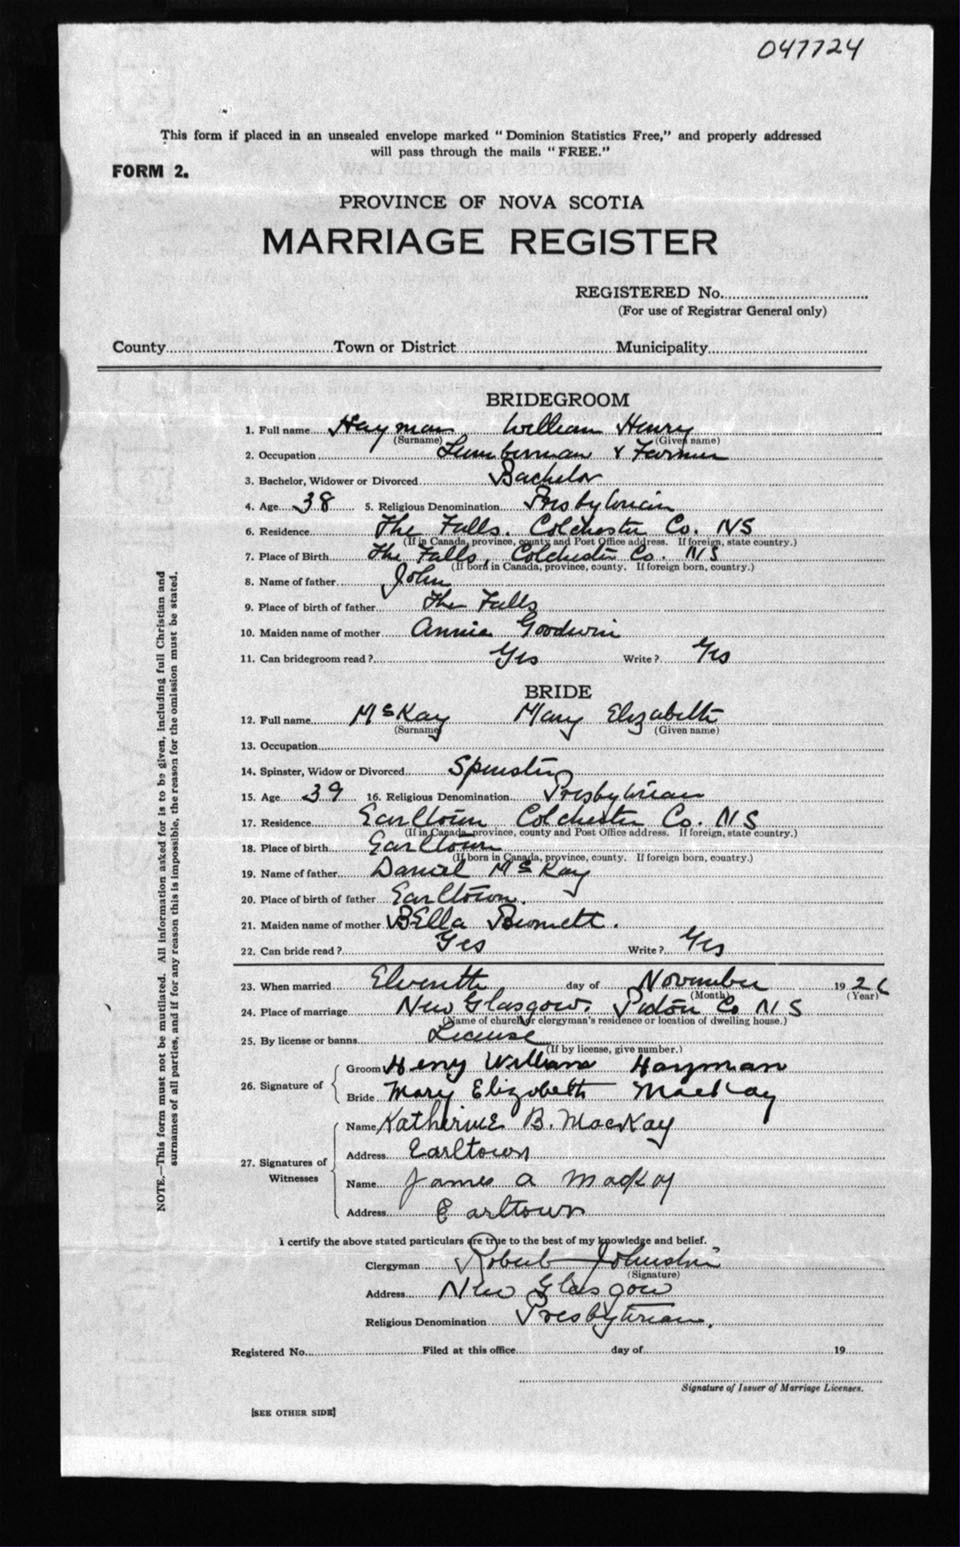 047724
This form if placed in an unsealed envelope marked "Dominion Statistics Free," and properly addressed
will pass through the mails "FREE."
FORM 2.
PROVINCE OF NOVA SCOTIA
MARRIAGE REGISTER
REGISTERED No.
(For use of Registrar General only)
County Town or District Municipality
BRIDEGROOM
1. Full name Hayman William Henry
(Surname) (Given name)
2. Occupation Lumberman & Farmer
3. Bachelor, Widower or Divorced Bachelor
4. Age 38 5. Religious Denomination Presbyterian
6. Residence The Falls. Colchester Co. NS
(If in Canada, province, county and Post Office address. If foreign, state country.)
7. Place of Birth The Falls, Colchester Co. NS
(If born in Canada, province, county. If foreign born, country.)
8. Name of father John
9. Place of birth of father The Falls
10. Maiden name of mother Annie Goodwin
11. Can bridegroom read? Yes Write? Yes
BRIDE
12. Full name McKay Mary Elizabeth
(Surname) (Given name)
13. Occupation
14. Spinster, Widow or Divorced Spinster
15. Age 39 16. Religious Denomination Presbyterian
17. Residence Earltown Colchester Co. NS
(If in Canada, province, county and Post Office address. If foreign, state country.)
18. Place of birth Earltown
(If born in Canada, province, county. If foreign born, country.)
19. Name of father Daniel McKay
20. Place of birth of father Earltown.
21. Maiden name of mother Bella
22. Can bride read? Yes Write? Yes
23. When married Eleventh day of November 1926
(Month) (Year)
24. Place of marriage New Glasgow, Pictou Co NS
(Name of church or clergyman's residence or location of dwelling house.)
25. By license or banns License
(If by license, give number.)
26. Signature of Groom Henry William Hayman
Bride Mary Elizabeth MacKay
27. Signatures of Witnesses Name Katherine B. MacKay
Address Earltown
Name James A MacKay
Address Earltown
I certify the above stated particulars are true to the best of my knowledge and belief.
Clergyman Robert Johnston
(Signature)
Address New Glasgow
Religious Denomination Presbyterian.
Registered No. Filed at this office day of 19
Signature of Issuer of Marriage Licenses.
[SEE OTHER SIDE]
NOTE.—This form must not be mutilated. All information asked for is to be given, including full Christian and
surnames of all parties, and if for any reason this is impossible, the reason for the omission must be stated.